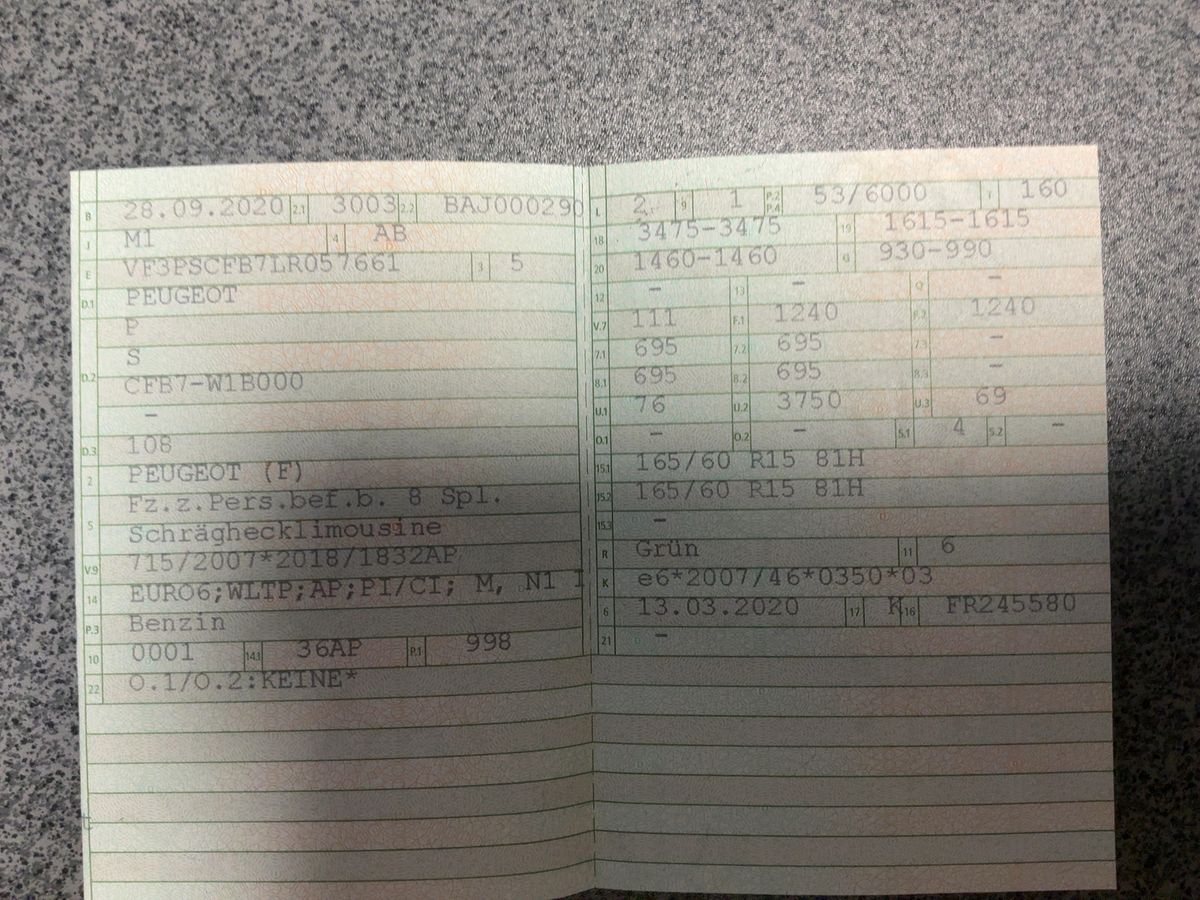 B 28.09.2020 2.1 3003 2.2 BAJ000290
J M1 4 AB
E VF3PSCFB7LR057661 3 5
D.1 PEUGEOT
P
D.2 S
CFB7-W1B000
-
D.3 108
2 PEUGEOT (F)
5 Fz.z.Pers.bef.b. 8 Spl.
Schräghecklimousine
V.9 715/2007*2018/1832AP
14 EURO6;WLTP;AP;PI/CI; M, N1 I
P.3 Benzin
10 0001 14.1 36AP P.1 998
22 O.1/O.2:KEINE*
L 2 9 1 P.2 P.4 53/6000 T 160
18 3475-3475 19 1615-1615
20 1460-1460 G 930-990
12 - 13 - Q -
V.7 111 F.1 1240 F.2 1240
7.1 695 7.2 695 7.3 -
8.1 695 8.2 695 8.3 -
U.1 76 U.2 3750 U.3 69
O.1 - O.2 - S.1 4 S.2 -
15.1 165/60 R15 81H
15.2 165/60 R15 81H
15.3 -
R Grün 11 6
K e6*2007/46*0350*03
6 13.03.2020 17 K 16 FR245580
21 -